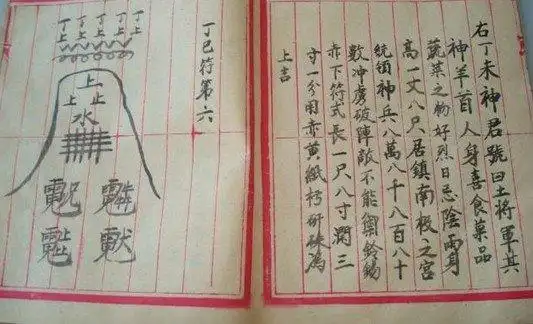 右丁未神君號曰土將軍其
神羊首人身喜食菓品
蔬菜之物好烈日忌陰雨身
高一丈八尺居鎮南极之宮
統領神兵八萬八千八百八十
數冲虜破陣敵不能禦鈴錫
赤下符式長一尺八寸濶三
寸一分用赤黄紙朽研硃為
上吉
丁巳符第六
丁丁丁丁丁
上上上上上
上
上止
水